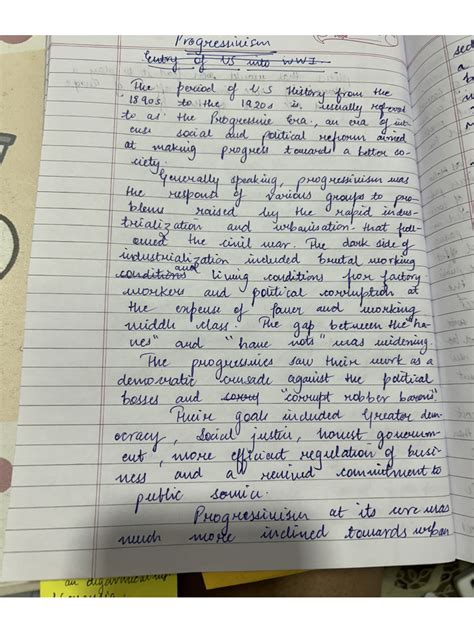 Progressivism
Entry of US into WWI
The period of U.S History from the
1890s to the 1920s is usually referred
to as the Progressive Era, an era of int
ense social and political reform aimed
at making progress towards a better so-
ciety.
Generally speaking, progressivism was
the respons of various groups to pro-
blems raised by the rapid indus-
trialization and urbanisation that foll-
owed the civil war. The dark side of
industrialization included brutal working
conditions and living conditions for factory
workers and political corruption at
the expense of and working
middle class. The gap between the "ha-
ves" and "have nots" was widening.
The progressives saw their work as a
democratic crusade against the political
bosses and "corrupt robber barons".
Their goals included Greater dem-
ocracy, Social justice, honest governm-
ent, more efficient regulation of busi-
ness and a revived commitment to
public service.
Progressivism at its core was
much more inclined towards urban